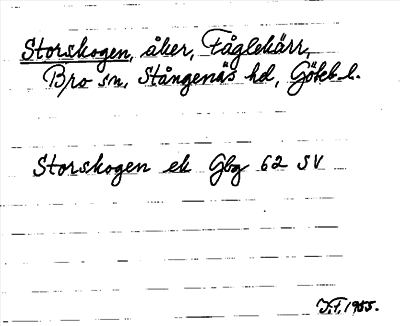 Storskogen, åker, Fåglekärr,
Bro sn, Stångenäs hd, Göteb. l.
Storskogen ek Gbg 62 SV
1955.